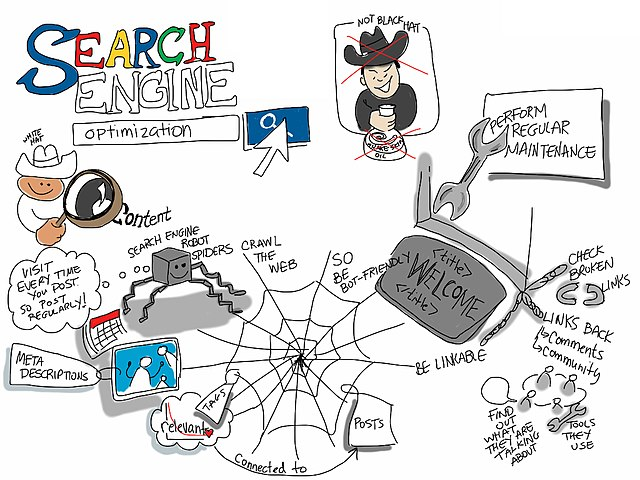 SEARCH
ENGINE
optimization
NOT BLACK HAT
OIL
PERFORM
REGULAR
MAINTENANCE
WHITE
HAT
Content
SEARCH ENGINE
ROBOT
SPIDERS
VISIT
EVERY TIME
YOU POST
SO POST
REGULARLY!
CRAWL
THE
WEB
SO
BE
BOT-FRIENDLY
<title>
WELCOME
<title>
CHECK
BROKEN
LINKS
LINKS BACK
Comments
Community
BE LINKABLE
META
DESCRIPTIONS
TAGS
relevant
POSTS
Connected to
FIND
OUT
WHAT
THEY ARE
TALKING
ABOUT
TOOLS
THEY
USE